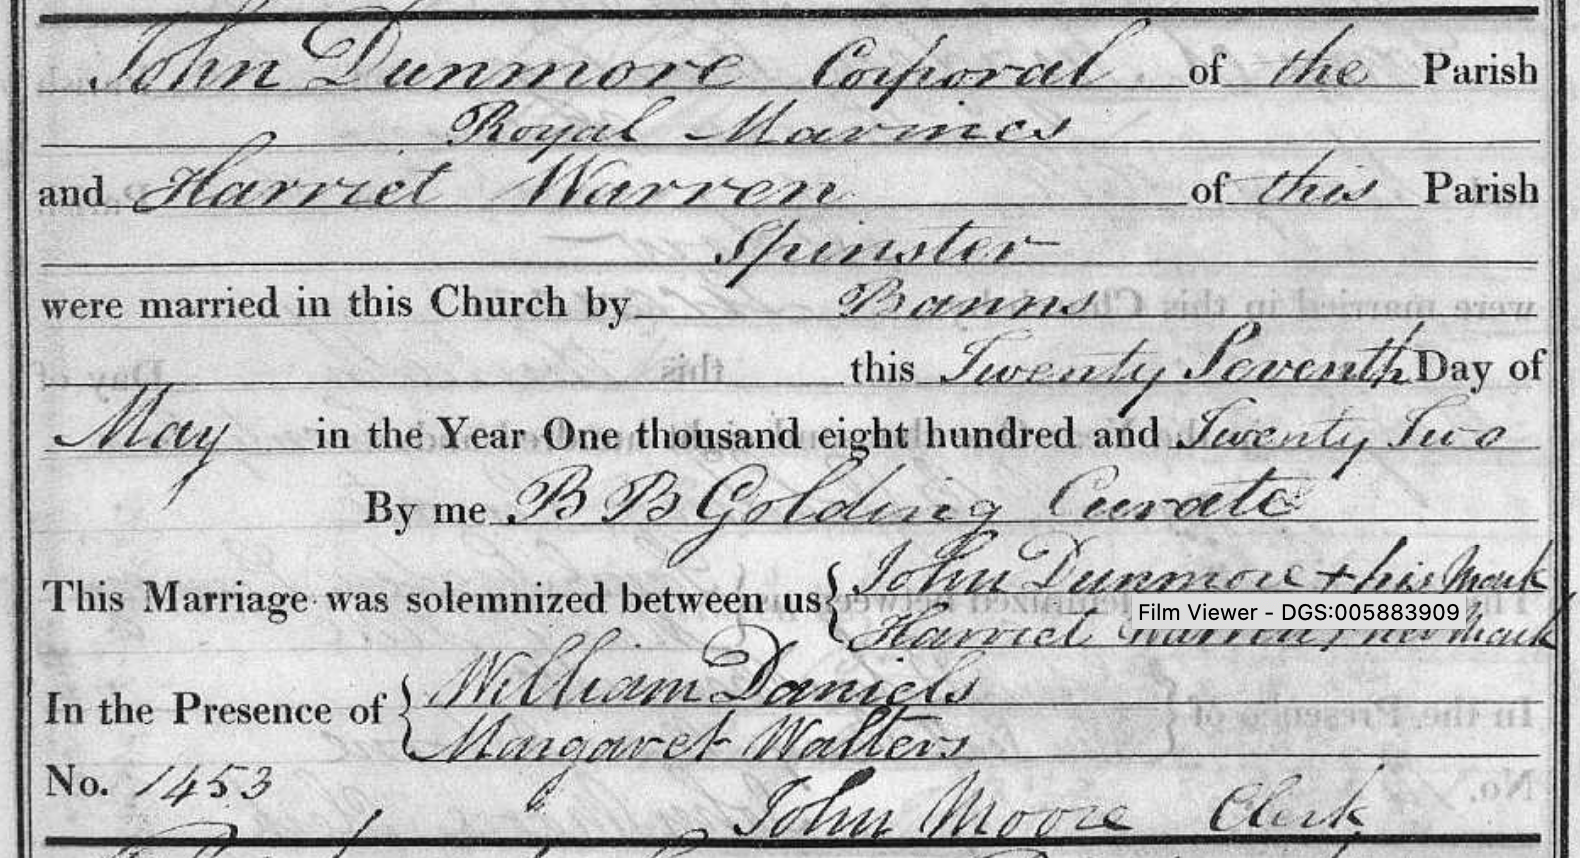 John Dunmore Corporal of the Parish
Royal Marines
and Harriet Warren of this Parish
Spinster
were married in this Church by Banns
this Twenty Seventh Day of
May in the Year One thousand eight hundred and Twenty Two
By me B B Golding Curate
This Marriage was solemnized between us { John Dunmore + his Mark
Film Viewer - DGS:005883909
Harriet Warren + her Mark
In the Presence of { William Daniels
Margaret Walters
No. 1453
John Moore Clerk